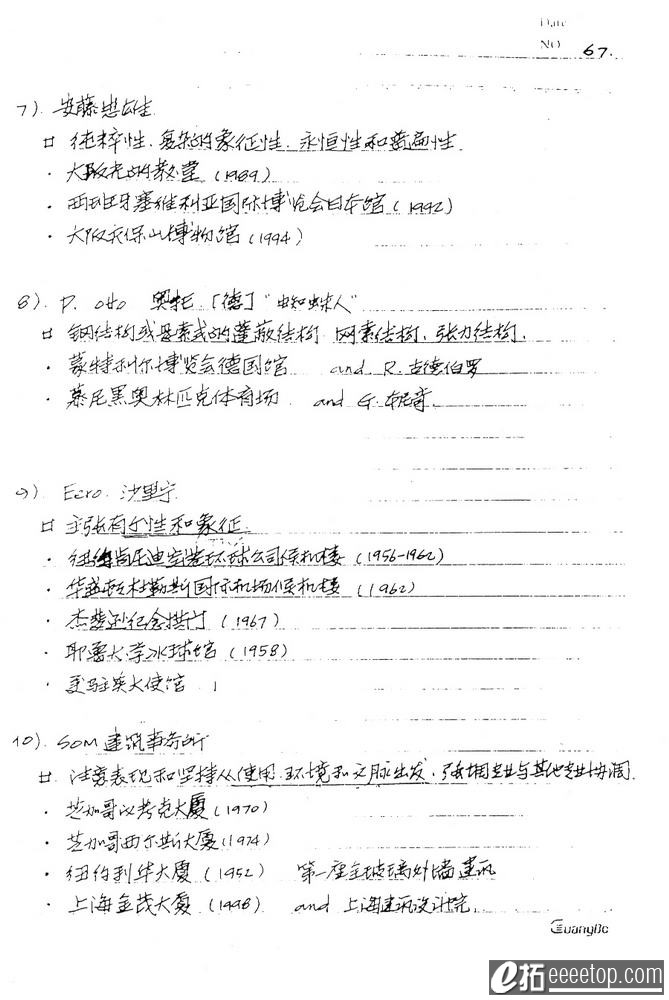 Date
NO 67.
7). 安藤忠雄
口 纯粹性、复杂的象征性、永恒性和普遍性
· 大阪光的教堂 (1989)
· 西班牙塞维利亚国际博览会日本馆 (1992)
· 大阪 保山博物馆 (1994)
8). otto 奥托 [德] "蜘蛛人"
口 钢结构或悬索式的蓬蔽结构 网索结构、张力结构.
· 蒙特利尔博览会德国馆 and R. 古德伯罗
· 慕尼黑奥林匹克体育场 and G. 奇
9). Eero. 沙里宁
口 主张有个性和象征
· 纽约肯尼迪 环球公司候机楼 (1956-1962)
· 华盛顿杜勒斯国际机场候机楼 (1962)
· 杰斐逊纪念拱门 (1967)
· 耶鲁大学冰球馆 (1958)
· 美驻英大使馆
10). SOM 建筑事务所
口 注意表现和坚持从使用、环境和文脉出发,强调专业与其他专业协调.
· 芝加哥汉考克大厦 (1970)
· 芝加哥西尔斯大厦 (1974)
· 纽约利华大厦 (1952) 第一座全玻璃外墙建筑
· 上海金茂大厦 (1998) and 上海建筑设计院.
GuangBo
e拓 eeeetop.com